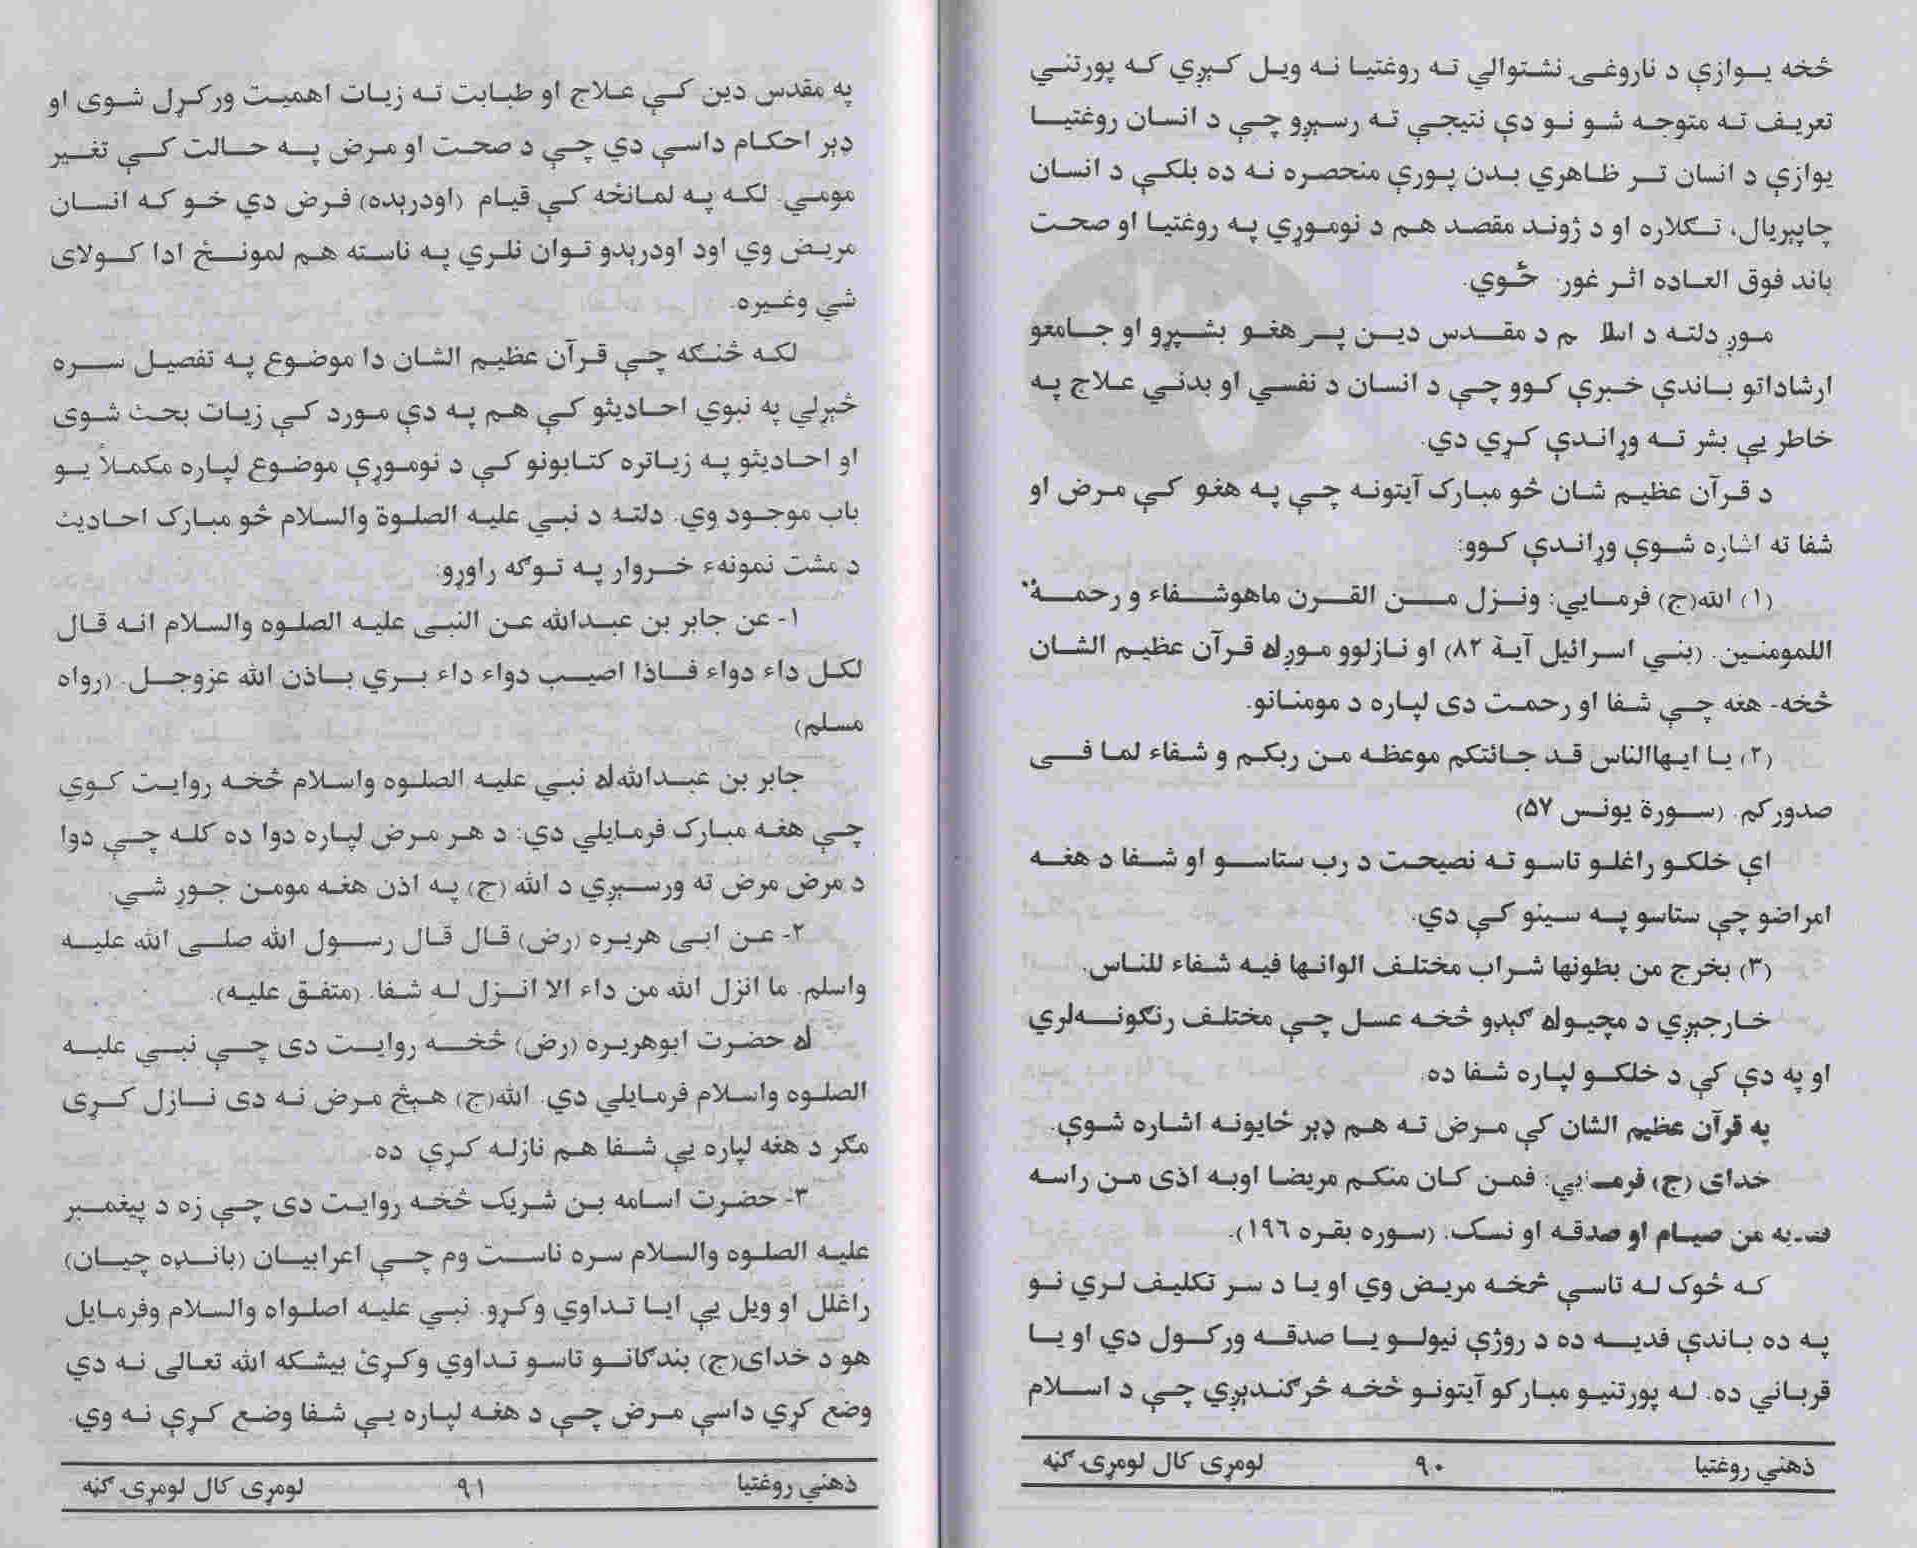 څخه يوازې د ناروغۍ نشتوالي ته روغتيا نه ويل کېږي که پورتني
تعريف ته متوجه شو نو دې نتيجې ته رسېږو چې د انسان روغتيا
يوازې د انسان تر ظاهري بدن پورې منحصره نه ده بلکې د انسان
چاپېريال، تګلاره او د ژوند مقصد هم د نوموړي په روغتيا او صحت
باند فوق العاده اثر غور ځوي.
موږ دلته د اسلا م د مقدس دين پر هغو بشپړو او جامعو
ارشاداتو باندې خبرې کوو چې د انسان د نفسي او بدني علاج په
خاطر يې بشر ته وړاندې کړي دي.
د قرآن عظيم شان څو مبارک آيتونه چې په هغو کې مرض او
شفا ته اشاره شوې وړاندې کوو:
(۱) الله(ج) فرمايي: ونزل من القرن ماهوشفاء و رحمة
اللمومنين. (بني اسرائيل آية ۸۲) او نازلوو موږله قرآن عظيم الشان
څخه- هغه چې شفا او رحمت دی لپاره د مومنانو.
(۲) يا ايهاالناس قد جائتکم موعظه من ربکم و شفاء لما فى
صدورکم. (سورة يونس ۵۷)
اې خلکو راغلو تاسو ته نصيحت د رب ستاسو او شفا د هغه
امراضو چې ستاسو په سينو کې دي.
(۳) بخرج من بطونها شراب مختلف الوانها فيه شفاء للناس.
خارجېږي د مچيوله ګېډو څخه عسل چې مختلف رنګونه‌لري
او په دې کې د خلکو لپاره شفا ده.
په قرآن عظيم الشان کې مرض ته هم ډېر ځايونه اشاره شوې.
خدای (ج) فرمايي: فمن کان منکم مريضا اوبه اذى من راسه
فديه من صيام او صدقه او نسک. (سوره بقره ۱۹٦).
که څوک له تاسې څخه مريض وي او يا د سر تکليف لري نو
په ده باندې فديه ده د روژې نيولو يا صدقه ورکول دي او يا
قرباني ده. له پورتنيو مبارکو آيتونو څخه څرګندېږي چې د اسلام
ذهني روغتيا ۹۰ لومړی کال لومړۍ ګڼه
په مقدس دين کې علاج او طبابت ته زيات اهميت ورکړل شوی او
ډېر احکام داسې دي چې د صحت او مرض په حالت کې تغير
مومي. لکه په لمانځه کې قيام (اودرېده) فرض دي خو که انسان
مريض وي اود اودرېدو توان نلري په ناسته هم لمونځ ادا کولای
شي وغيره.
لکه څنګه چې قرآن عظيم الشان دا موضوع په تفصيل سره
څېړلې په نبوي احاديثو کې هم په دې مورد کې زيات بحث شوی
او احاديثو په زياتره کتابونو کې د نوموړې موضوع لپاره مکملاً يو
باب موجود وي. دلته د نبي عليه الصلوة والسلام څو مبارک احاديث
د مشت نمونهء خروار په توګه راوړو:
۱- عن جابر بن عبدالله عن النبى عليه الصلوه والسلام انه قال
لکل داء دواء فاذا اصيب دواء داء بري باذن الله عزوجل. (رواه
مسلم)
جابر بن عبدالله‌له نبي عليه الصلوه واسلام څخه روايت کوي
چې هغه مبارک فرمايلي دي: د هر مرض لپاره دوا ده کله چې دوا
د مرض مرض ته ورسېږي د الله (ج) په اذن هغه مومن جوړ شي.
۲- عن ابى هريره (رض) قال قال رسول الله صلى الله عليه
واسلم. ما انزل الله من داء الا انزل له شفا. (متفق عليه).
له حضرت ابوهريره (رض) څخه روايت دی چې نبي عليه
الصلوه واسلام فرمايلي دي. الله(ج) هېڅ مرض نه دی نازل کړی
مګر د هغه لپاره يې شفا هم نازله کړې ده.
۳- حضرت اسامه بن شريک څخه روايت دی چې زه د پيغمبر
عليه الصلوه والسلام سره ناست وم چې اعرابيان (بانډه چيان)
راغلل او ويل يې ايا تداوي وکړو. نبي عليه اصلواه والسلام وفرمايل
هو د خدای(ج) بندګانو تاسو تداوي وکړئ بيشکه الله تعالی نه دي
وضع کړي داسې مرض چې د هغه لپاره يې شفا وضع کړې نه وي.
ذهني روغتيا ۹۱ لومړی کال لومړۍ ګڼه